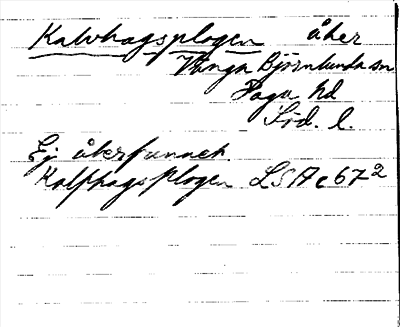 Kalvhagsplogen åker
Vånga Björnlunda sn
Daga hd
Söd. l.
Ej återfunnet.
Kalfhagsplogen LSA c 67²